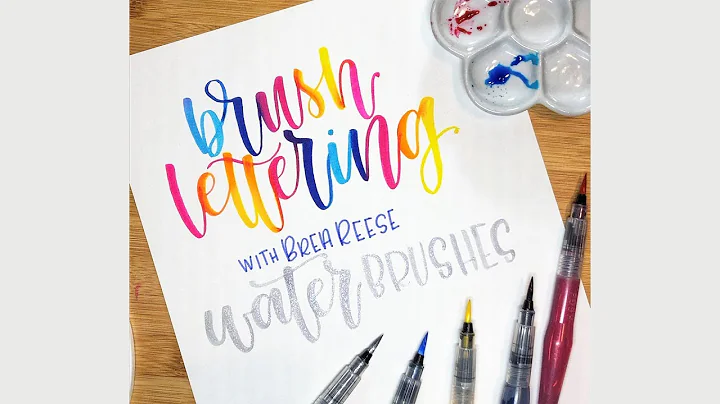 brush
lettering
with BREA REESE
water BRUSHES